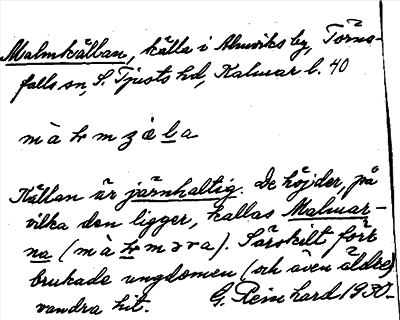 Malmkällan, källa i Almviks by, Törns-
falls sn, S. Tjusts hd, Kalmar l. 40
Källan är järnhaltig. De höjder, på
vilka den ligger, kallas Malmar-
na (). Särskilt förr
brukade ungdomen (och även äldre)
vandra hit. G. Reinhard 1930-